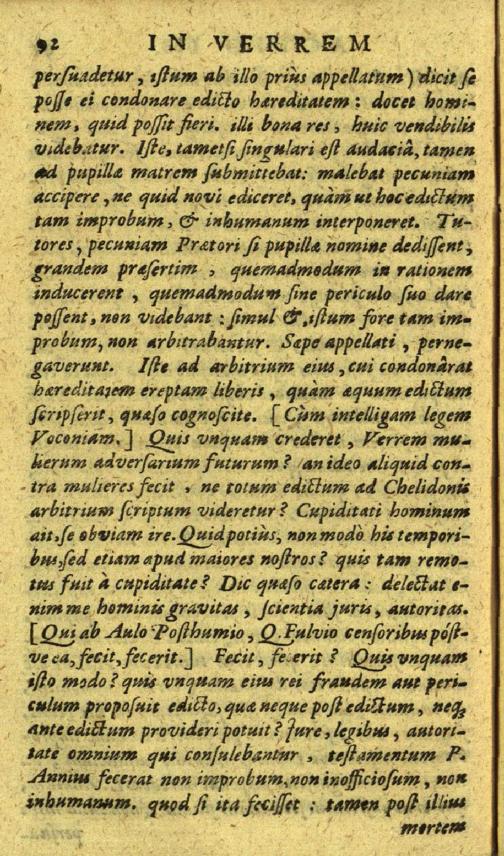 92 IN VERREM
persuadetur, istum ab illo priùs appellatum) dicit se
posse ei condonare edicto hæreditatem: docet homi-
nem, quid possit fieri. illi bona res, huic vendibilis
videbatur. Iste, tametsi singulari est audaciâ, tamen
ad pupillæ matrem submittebat: malebat pecuniam
accipere, ne quid novi ediceret, quàm ut hoc edictum
tam improbum, & inhumanum interponeret. Tu-
tores, pecuniam Prætori si pupillæ nomine dedissent,
grandem præsertim, quemadmodum in rationem
inducerent, quemadmodum sine periculo suo dare
possent, non videbant: simul & istum fore tam im-
probum, non arbitrabantur. Sæpe appellati, perne-
gaverunt. Iste ad arbitrium eius, cui condonârat
hæreditatem ereptam liberis, quàm æquum edictum
scripserit, quæso cognoscite. [Cùm intelligam legem
Voconiam.] Quis vnquam crederet, Verrem mu-
lierum adversarium futurum? an ideo aliquid con-
tra mulieres fecit, ne totum edictum ad Chelidonis
arbitrium scriptum videretur? Cupiditati hominum
ait, se obviam ire. Quid potiùs, non modò his tempori-
bus, sed etiam apud maiores nostros? quis tam remo-
tus fuit à cupiditate? Dic quæso cætera: delectat e-
nim me hominis gravitas, scientia juris, autoritas.
[Qui ab Aulo Posthumio, Q. Fulvio censoribus póst-
ve ea, fecit, fecerit.] Fecit, fecerit? Quis vnquam
isto modo? quis vnquam eius rei fraudem aut peri-
culum proposuit edicto, quæ neque post edictum, neq;
ante edictum provideri potuit? Jure, legibus, autori-
tate omnium qui consulebantur, testamentum P.
Annius fecerat non improbum, non inofficiosum, non
inhumanum. quod si ita fecisset: tamen post illius
mortem